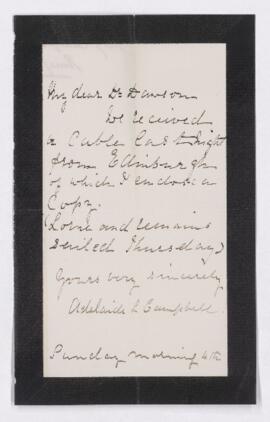 My dear Dr Dawson
We received
a Cable last night
from Edinburgh
of which I enclose a
Copy.
(Lorne and remains
sailed Thursday)
Yours very sincerely
Adelaide L Campbell.
Sunday morning 4th